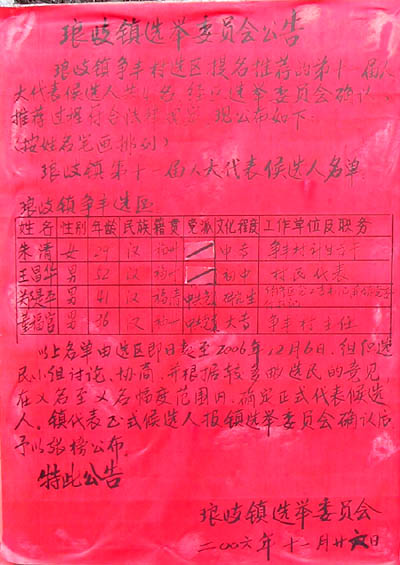 琅岐镇选举委员会公告
琅岐镇争丰村选区提名推荐的第十一届人
大代表候选人共4名,经区选举委员会确认,
推荐过程符合法律规定,现公布如下:
(按姓名笔画排列)
琅岐镇第十一届人大代表候选人名单:
琅岐镇争丰选区
姓名 性别 年龄 民族 籍贯 党派 文化程度 工作单位及职务
朱清 女 29 汉 福州 中专 争丰村计生干
王昌华 男 52 汉 福州 初中 村民代表
男 41 汉 福清 中共党 研究生
董福官 男 36 汉 福州 中共党 大专 争丰村主任
以上名单由选区即日起至2006年12月6日,组织选
民小组讨论、协商,并根据较多的选民的意见,
在 名至 名幅度范围内,确定正式代表候选
人。镇代表正式候选人报镇选举委员会确认后
予以张榜公布。
特此公告
琅岐镇选举委员会
二00六年十一月廿 日